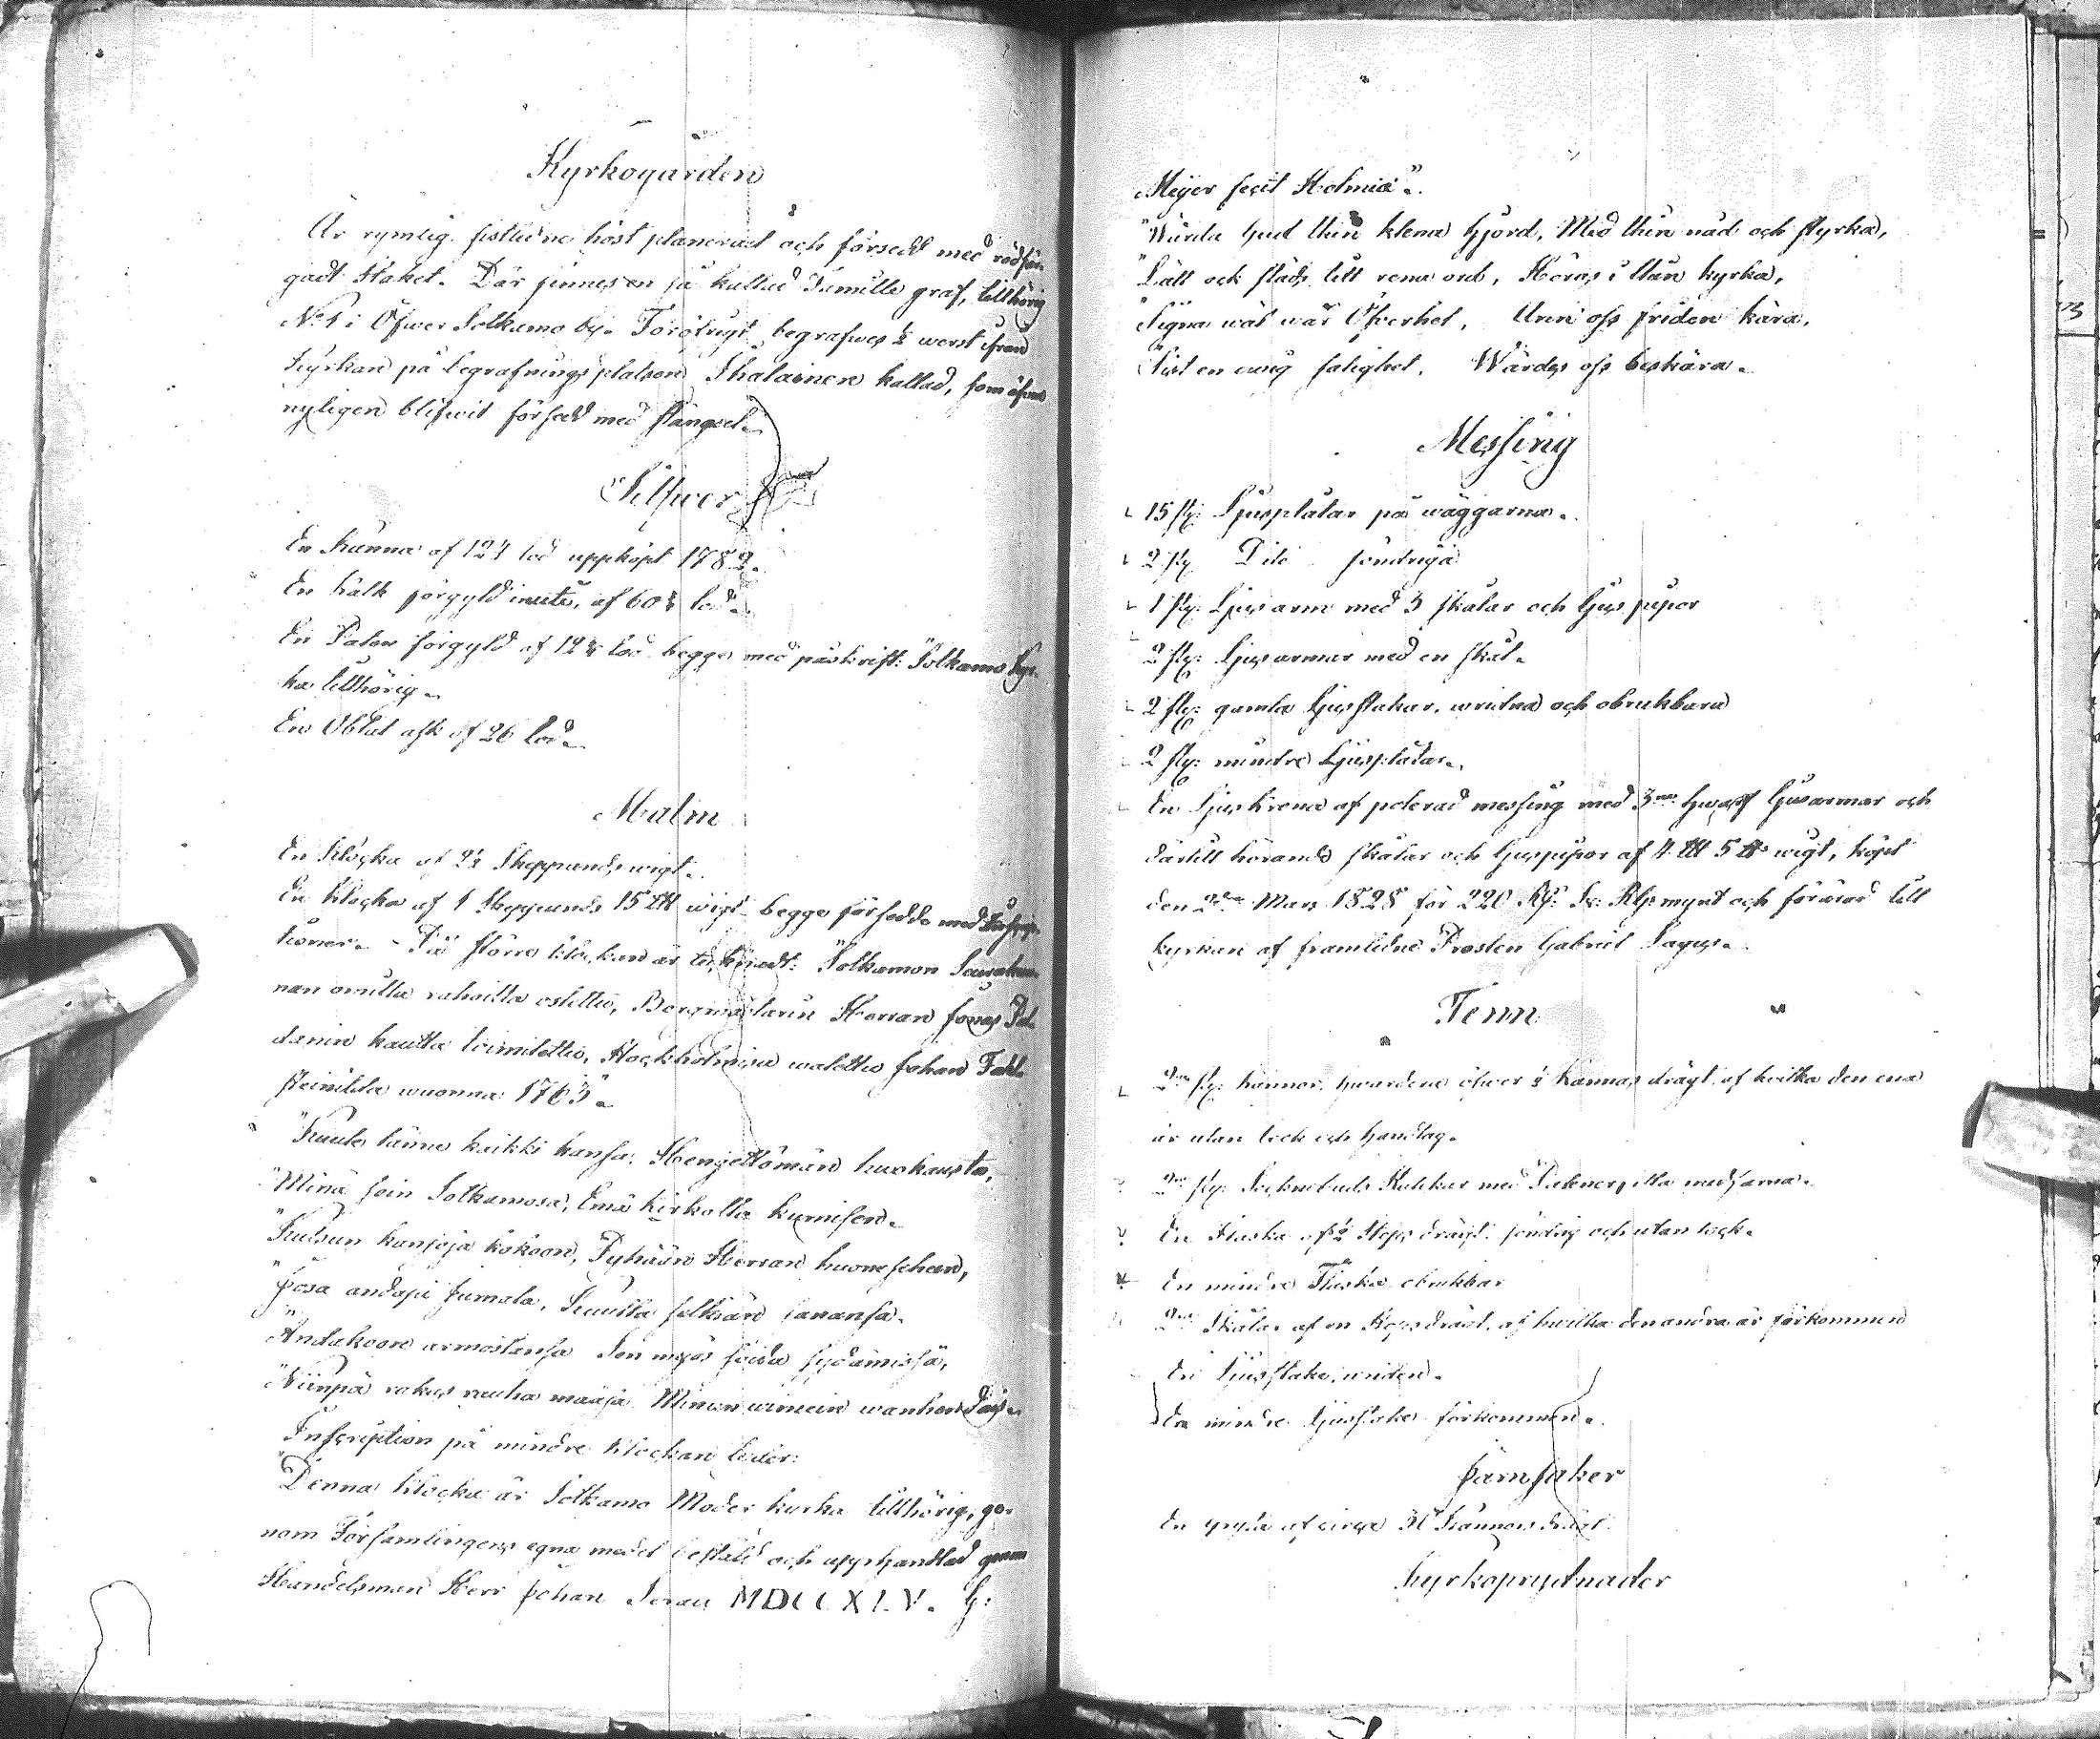 Kyrkogården
Är rymlig, sistledne höst planerad och försedd med rödfär-
gadt Staket. Där finnes en så kallad Famille graf, tillhörig
No 1 i Öfwer Sotkamo by. Foröfrigt begrafwes ½ werst ifrån
Kyrkan på begrafningsplatsen kallad, som äfwen
nyligen blifwit försedd med stängsel.
Silfwer
En Kanna af 124 lod uppköpt 1782.
En Kalk förgyld inuti, af 60¾ lod.
En Paten förgyld af lod begge med påskrift: "Sotkamo Kyr-
ka tillhörig.
En Oblat ask af 26 lod.
Malm
En Klocka af 2½ Skeppunds wigt.
En Klocka af 1 Skeppunds 15 LH wigt begge försedda med Inscrip-
tioner. - På större klockan är tecknadt: "Sotkamon Seurakun-
nan omilla rahoilla ostettu, Borgmästarin Herran Jonas
kautta toimitettu, Stockholmisa walettu Johan Fahl-
steinilda wuonna 1763".
"Kuule tänne kaikki kansa, Hengettömän huokausta,
"Minä soin Sotkamosa, Emä kirkolla kumisen.
"Kutsun kansoja kokoon, Pyhään Herran huoneseheen,
"Josa andapi Jumala, Kuulla selkiän sanansa.
"Andakoon armostansa Sen myös soida sydämissä,
"Niinpä rakas rauha maasa Minun wirnein wanhendais.
Inscription på mindre klockan lyder:
"Denna klocka är Sotkamo Moder kyrka tillhörig, ge-
nom Församlingens egna medel bestäld och upphandlad genom
Handelsman Herr Johan MDCCXLV. G:
Meyer fecit Holmiæ".
"Wårda Gud thin klena hjord, Med thin nåd och styrka,
"Lått ock städs titt rena ord, Höras i thin kyrka,
"Signa wäl wår Öfwerhet, Unn oss friden kära,
"Sist en ewig salighet, Wärdes oss beskära.
Messing
15 st: Ljusplåtar på wäggarna.
2 st Dito söndriga
1 st: Ljusarm med 3 skålar och ljuspipor
2 st: Ljusarmar med en skål.
2 st: gamla Ljusstakar, wridna och obrukbara
2 st: mindre Ljusplåtar.
En Ljuskrona af polerad messing med 3ne hwarf ljusarmar och
därtill hörande skålar och ljuspipor af 4 LH 5 H wigt, köpt
den 2dra Mars 1828 för 220 Rs: Ss: mynt och förärad till
kyrkan af framlidne Prosten Gabriel Lagus.
Tenn
2ne st: kannor, hwardera öfwer ½ Kannas drägt, af hvilka den ena
är utan lock och handtag.
2ne st: Socknebuds Kalkar med Patener, illa medfarna.
En Flaska af ½ Stops drägt, söndrig och utan lock.
En mindre Flaska obrukbar
2ne Skålar af en Stops drägt, af hwilka den andra är förkommen
En Ljusstake, wriden.
En mindre Ljusstake förkommen.
Järnsaker
En gryta af circa 30 Kannors drägt.
Kyrkoprydnader